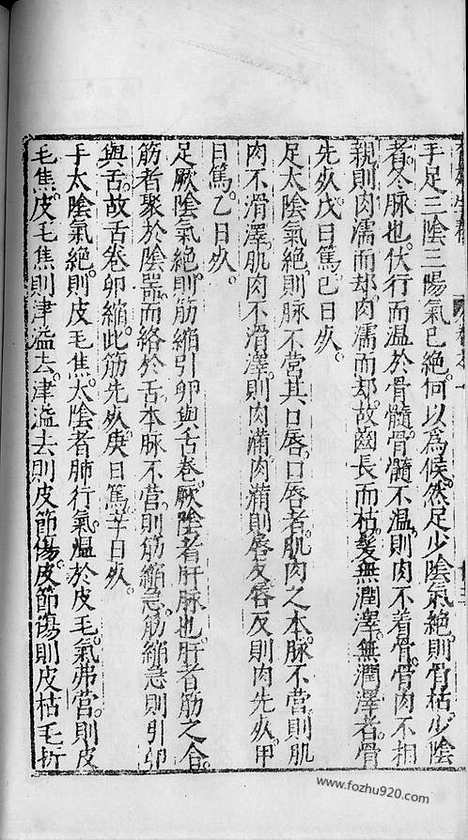 手足三陰三陽氣已絕何以為候然足少陰氣絕則骨枯少陰
者冬脉也伏行而温於骨髓骨髓不温則肉不着骨骨肉不相
親則肉濡而却肉濡而却故齒長而枯髮無潤澤無潤澤者骨
先死戊日篤己日死
足太陰氣絕則脉不營其口唇口唇者肌肉之本脉不營則肌
肉不滑澤肌肉不滑澤則肉滿肉滿則唇反唇反則肉先死甲
日篤乙日死
足厥陰氣絕則筋縮引卵與舌卷厥陰者肝脉也肝者筋之合
筋者聚於陰器而絡於舌本脉不營則筋縮急筋縮急則引卵
與舌故舌卷卵縮此筋先死庚日篤辛日死
手太陰氣絕則皮毛焦太陰者肺行氣溫於皮毛氣弗營則皮
毛焦皮毛焦則津溢去津溢去則皮節傷皮節傷則皮枯毛折
www.fozhu920.com